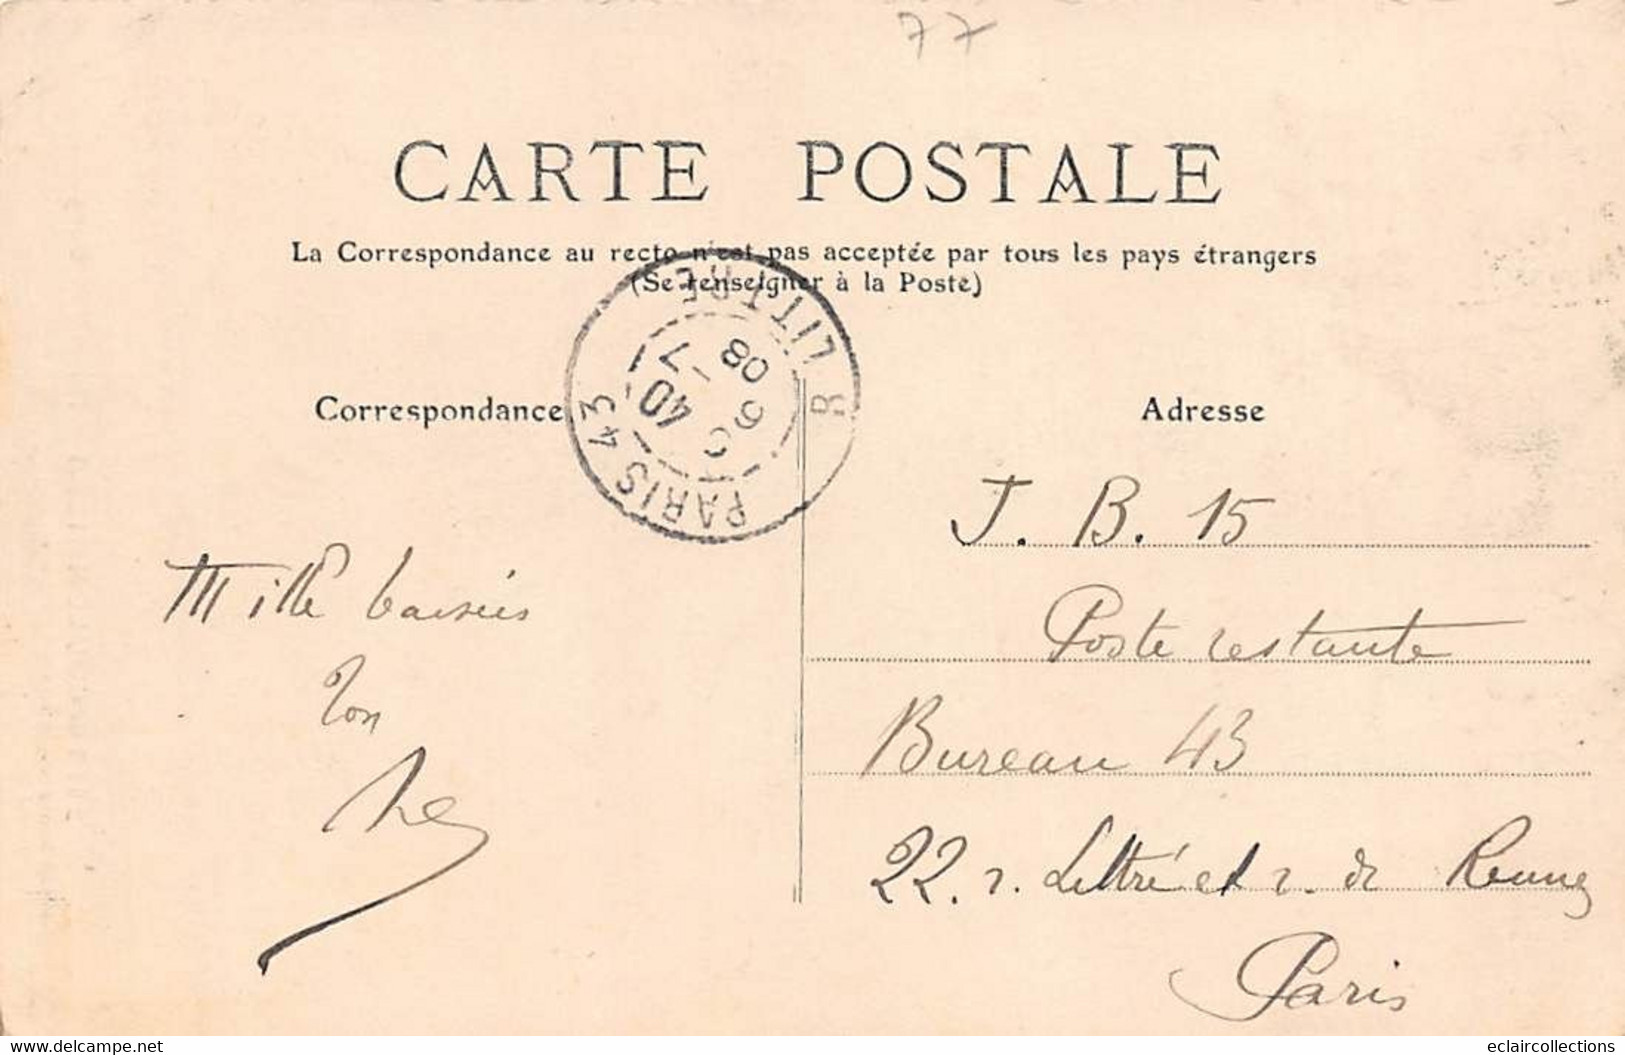 77
CARTE POSTALE
La Correspondance au recto n'est pas acceptée par tous les pays étrangers
(Se renseigner à la Poste)
PARIS 43 R. LITTRÉ
7 40
6
08
Correspondance
Adresse
Mille baisers
Ton
J. B. 15
Poste restante
Bureau 43
22. r. Littré et r. de Rennes
Paris
www.delcampe.net
eclaircollections